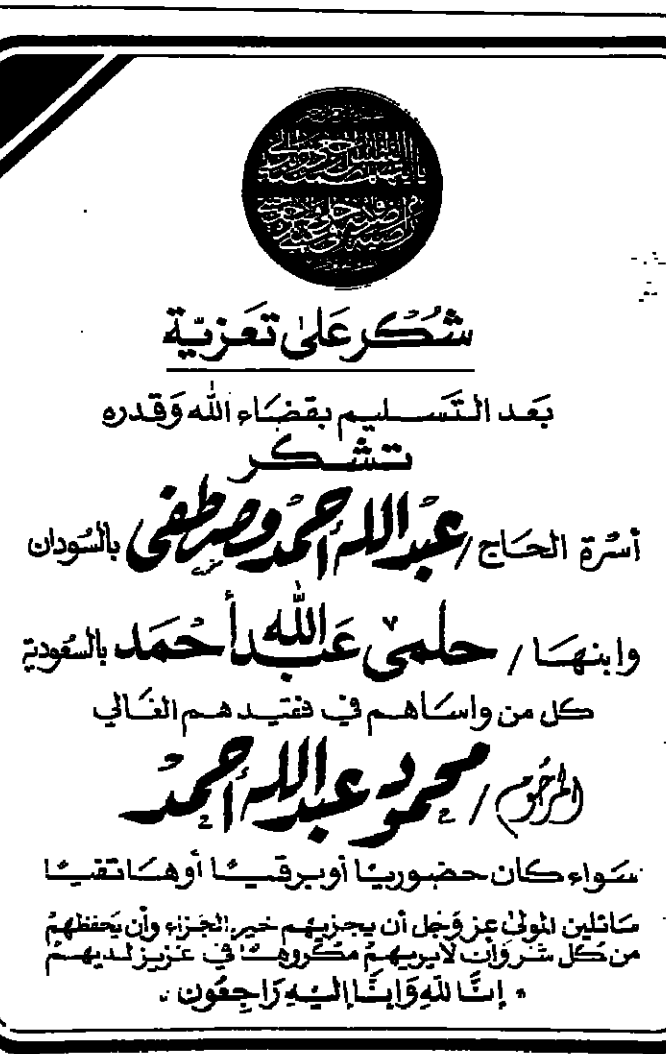 شُكر عَلىٰ تَعَزيّة
بَعد التَّسليم بقضَاء الله وَقدره
تشكر
أسْرة الحَاج / عَبْدالله أحْمَدْ مصطفى بالسّودان
وابنهَا / حلمى عَبْدالله أحْمَد بالسّعوديّة
كل من واسَاهم في فقيدهم الغَالي
المرحُوم / محمود عبدالله أحمد
سَواء كان حضوريًا أوبرقيًا أوهَاتفيًا
سَائلين المولىٰ عز وَجل أن يجزيهم خير الجَزاء وأن يَحفظهمْ
من كل شر وَأن لايريهمْ مكروهًا في عَزيز لديهمْ
" إنَّا للهِ وَإنَّا إليْهِ رَاجِعُون "